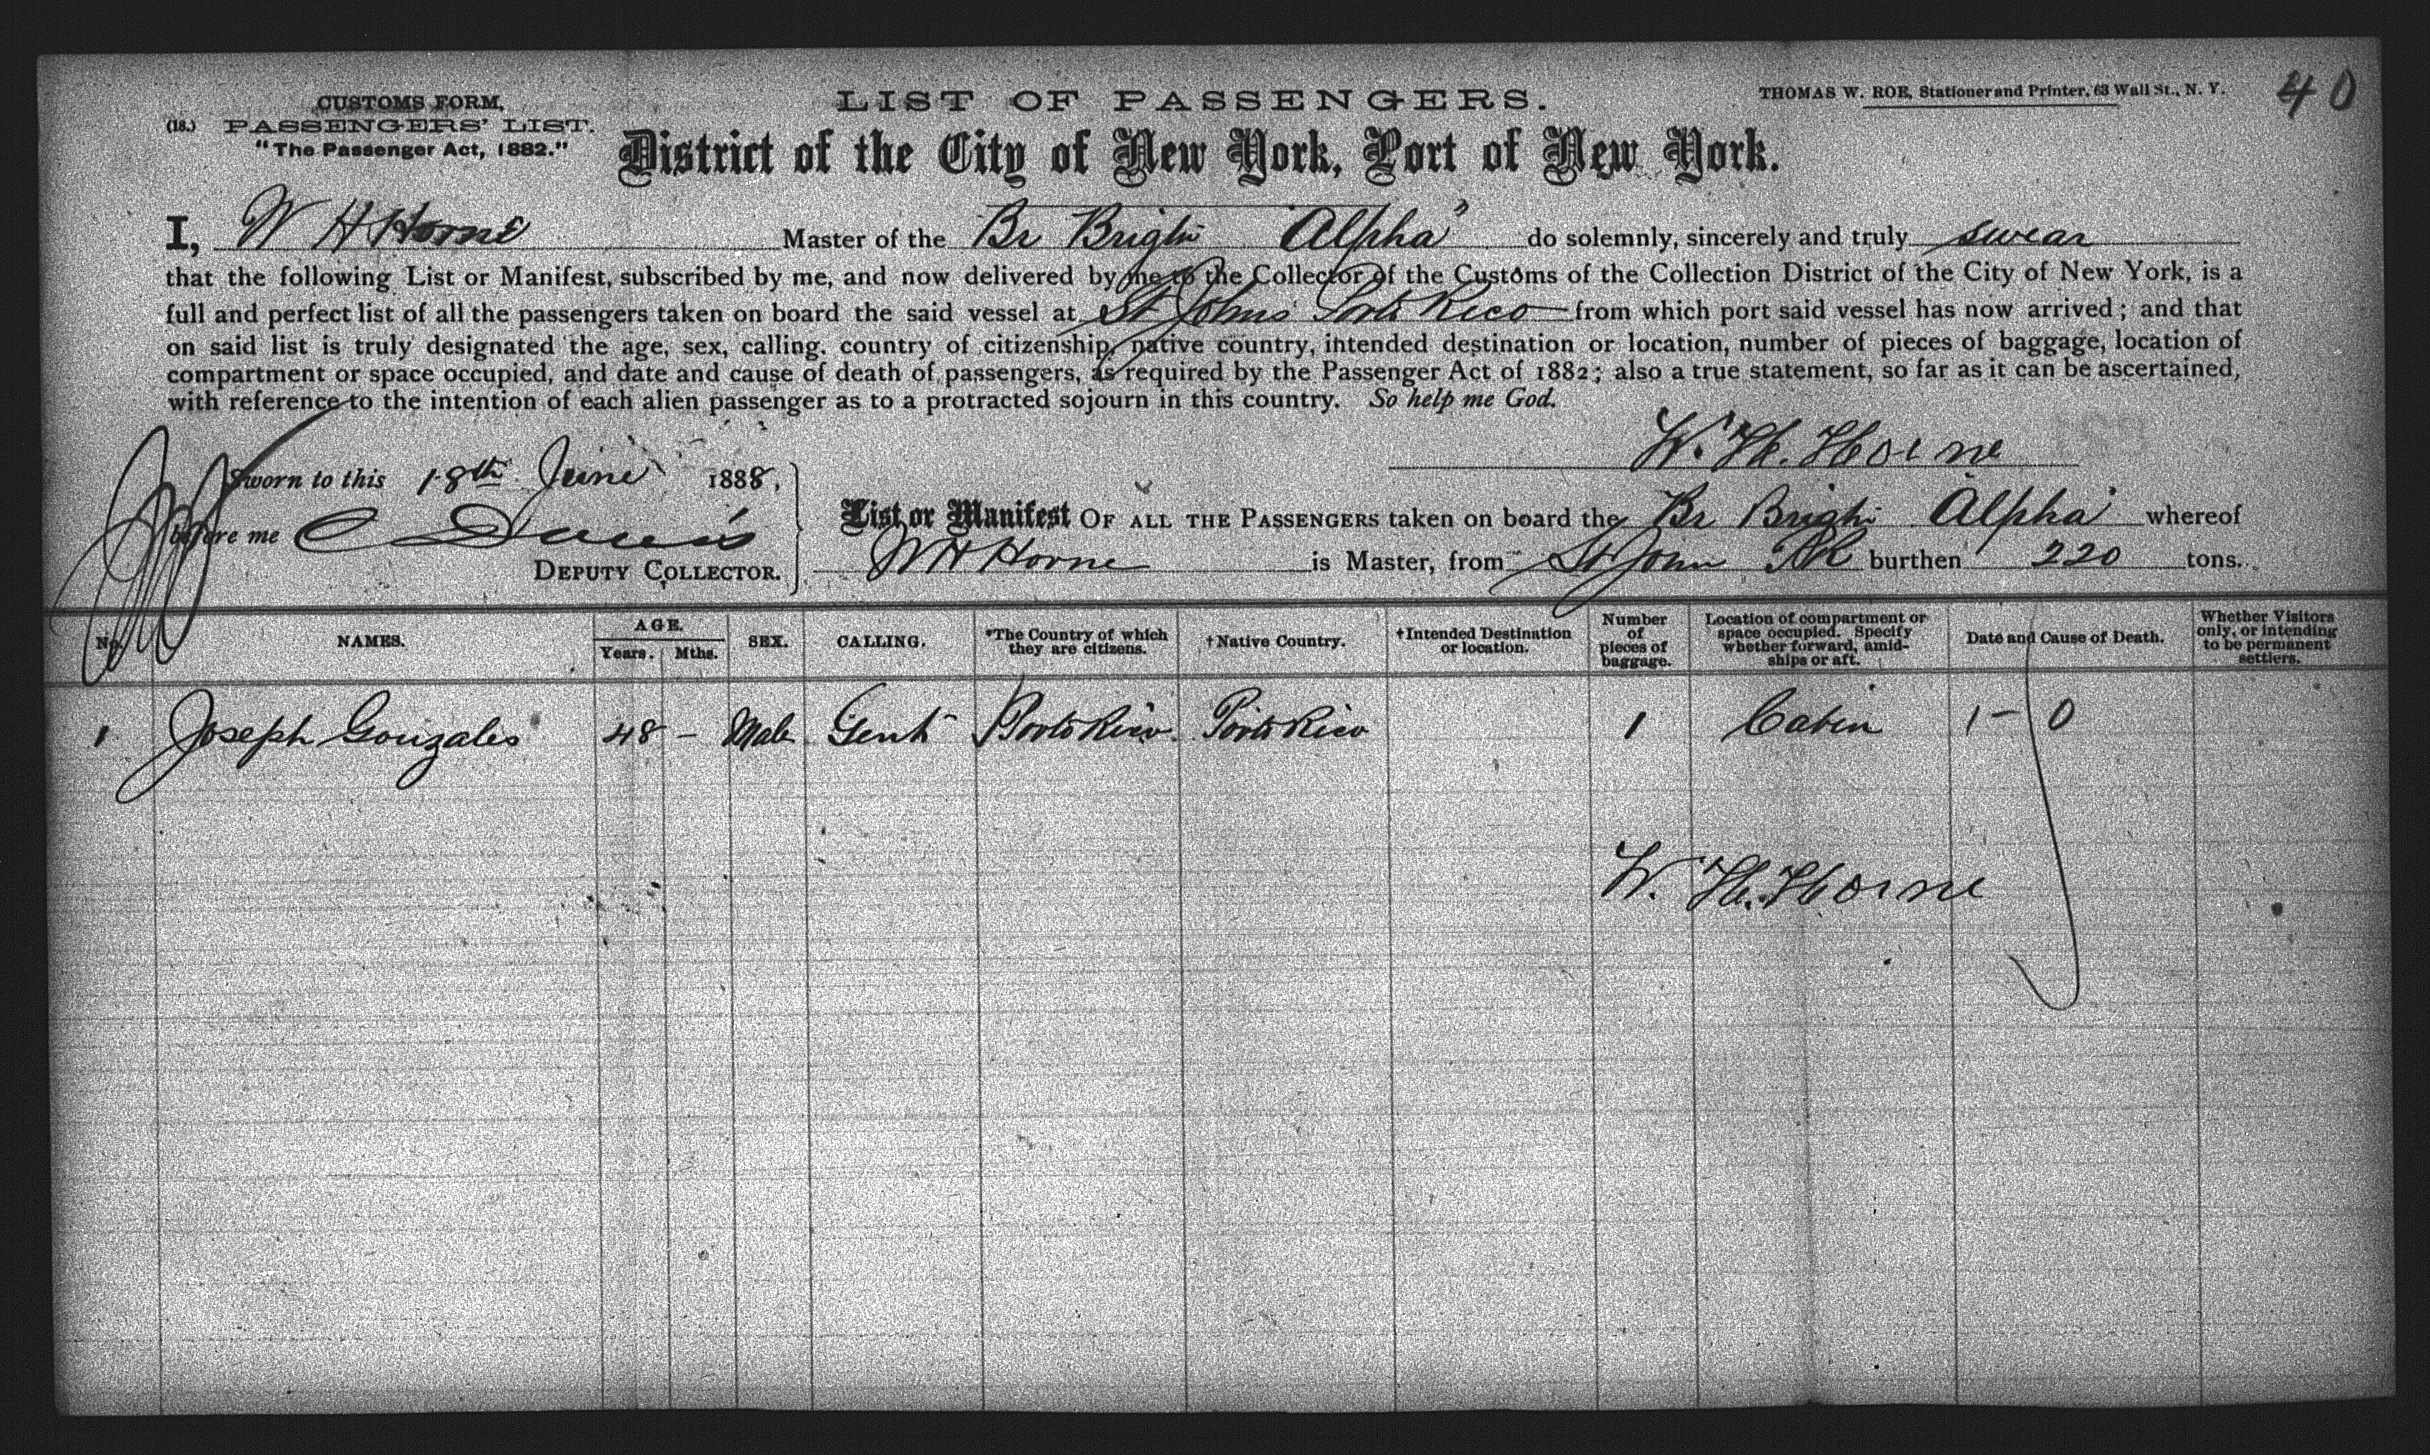 CUSTOMS FORM,
(18.) PASSENGERS' LIST.
"The Passenger Act, 1882."
LIST OF PASSENGERS.
THOMAS W. ROE, Stationer and Printer, 63 Wall St., N. Y.
40
District of the City of New York, Port of New York.
I, W H Horne Master of the Br Brigtn "Alpha" do solemnly, sincerely and truly swear
that the following List or Manifest, subscribed by me, and now delivered by me to the Collector of the Customs of the Collection District of the City of New York, is a
full and perfect list of all the passengers taken on board the said vessel at St Johns Porto Rico from which port said vessel has now arrived; and that
on said list is truly designated the age, sex, calling, country of citizenship, native country, intended destination or location, number of pieces of baggage, location of
compartment or space occupied, and date and cause of death of passengers, as required by the Passenger Act of 1882; also a true statement, so far as it can be ascertained,
with reference to the intention of each alien passenger as to a protracted sojourn in this country. So help me God.
W. H. Horne
Sworn to this 18th June 1888,
before me C
DEPUTY COLLECTOR.
List or Manifest OF ALL THE PASSENGERS taken on board the Br Brigtn Alpha whereof
W H Horne is Master, from St John PR burthen 220 tons.
No. NAMES. AGE. Years. Mths. SEX. CALLING. *The Country of which they are citizens. †Native Country. †Intended Destination or location. Number of pieces of baggage. Location of compartment or space occupied. Specify whether forward, amidships or aft. Date and Cause of Death. Whether Visitors only, or intending to be permanent settlers.
1 Joseph Gonzales 48 - Male Gent Porto Rico Porto Rico 1 Cabin 1-0
W. H. Horne